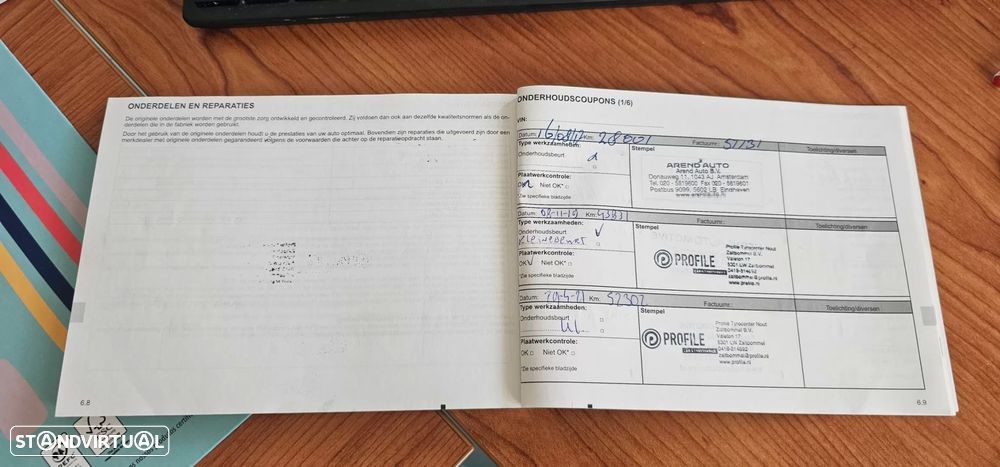 ONDERDELEN EN REPARATIES
De originele onderdelen worden met de grootste zorg ontwikkeld en gecontroleerd. Zij voldoen dan ook aan dezelfde kwaliteitsnormen als de on-
derdelen die in de fabriek worden gebruikt.
Door het gebruik van de originele onderdelen houdt u de prestaties van uw auto optimaal. Bovendien zijn reparaties die uitgevoerd zijn door een
merkdealer met originele onderdelen gegarandeerd volgens de voorwaarden die achter op de reparatieopdracht staan.
6.8
ONDERHOUDSCOUPONS (1/6)
VIN:
Datum: Km: 28001 Factuurnr.: 51731 Toelichting/diversen
Type werkzaamheden: Stempel
Onderhoudsbeurt
AREND AUTO
Arend Auto B.V.
Donauweg 11, 1043 AJ Amsterdam
Tel. 020 - 5819600 Fax 020 - 5819601
Postbus 9099, 5602 LB Eindhaven
Plaatwerkcontrole:
OK Niet OK*
*Zie specifieke bladzijde
Datum: 08-11-19 Km: 43831 Factuurnr.: Toelichting/diversen
Type werkzaamheden: Stempel
Onderhoudsbeurt
PROFILE
Profile Tyrecenter Nout
Zaltbommel B.V.
Valeton 17
5301 LW Zaltbommel
0418-514692
zaltbommel@profile.nl
www.profile.nl
Plaatwerkcontrole:
OK Niet OK*
*Zie specifieke bladzijde
Datum: 20-4-21 Km: 52302 Factuurnr.: Toelichting/diversen
Type werkzaamheden: Stempel
Onderhoudsbeurt
PROFILE
Profile Tyrecenter Nout
Zaltbommel B.V.
Valeton 17
5301 LW Zaltbommel
0418-514692
zaltbommel@profile.nl
www.profile.nl
Plaatwerkcontrole:
OK Niet OK*
*Zie specifieke bladzijde
6.9
STANDVIRTUAL